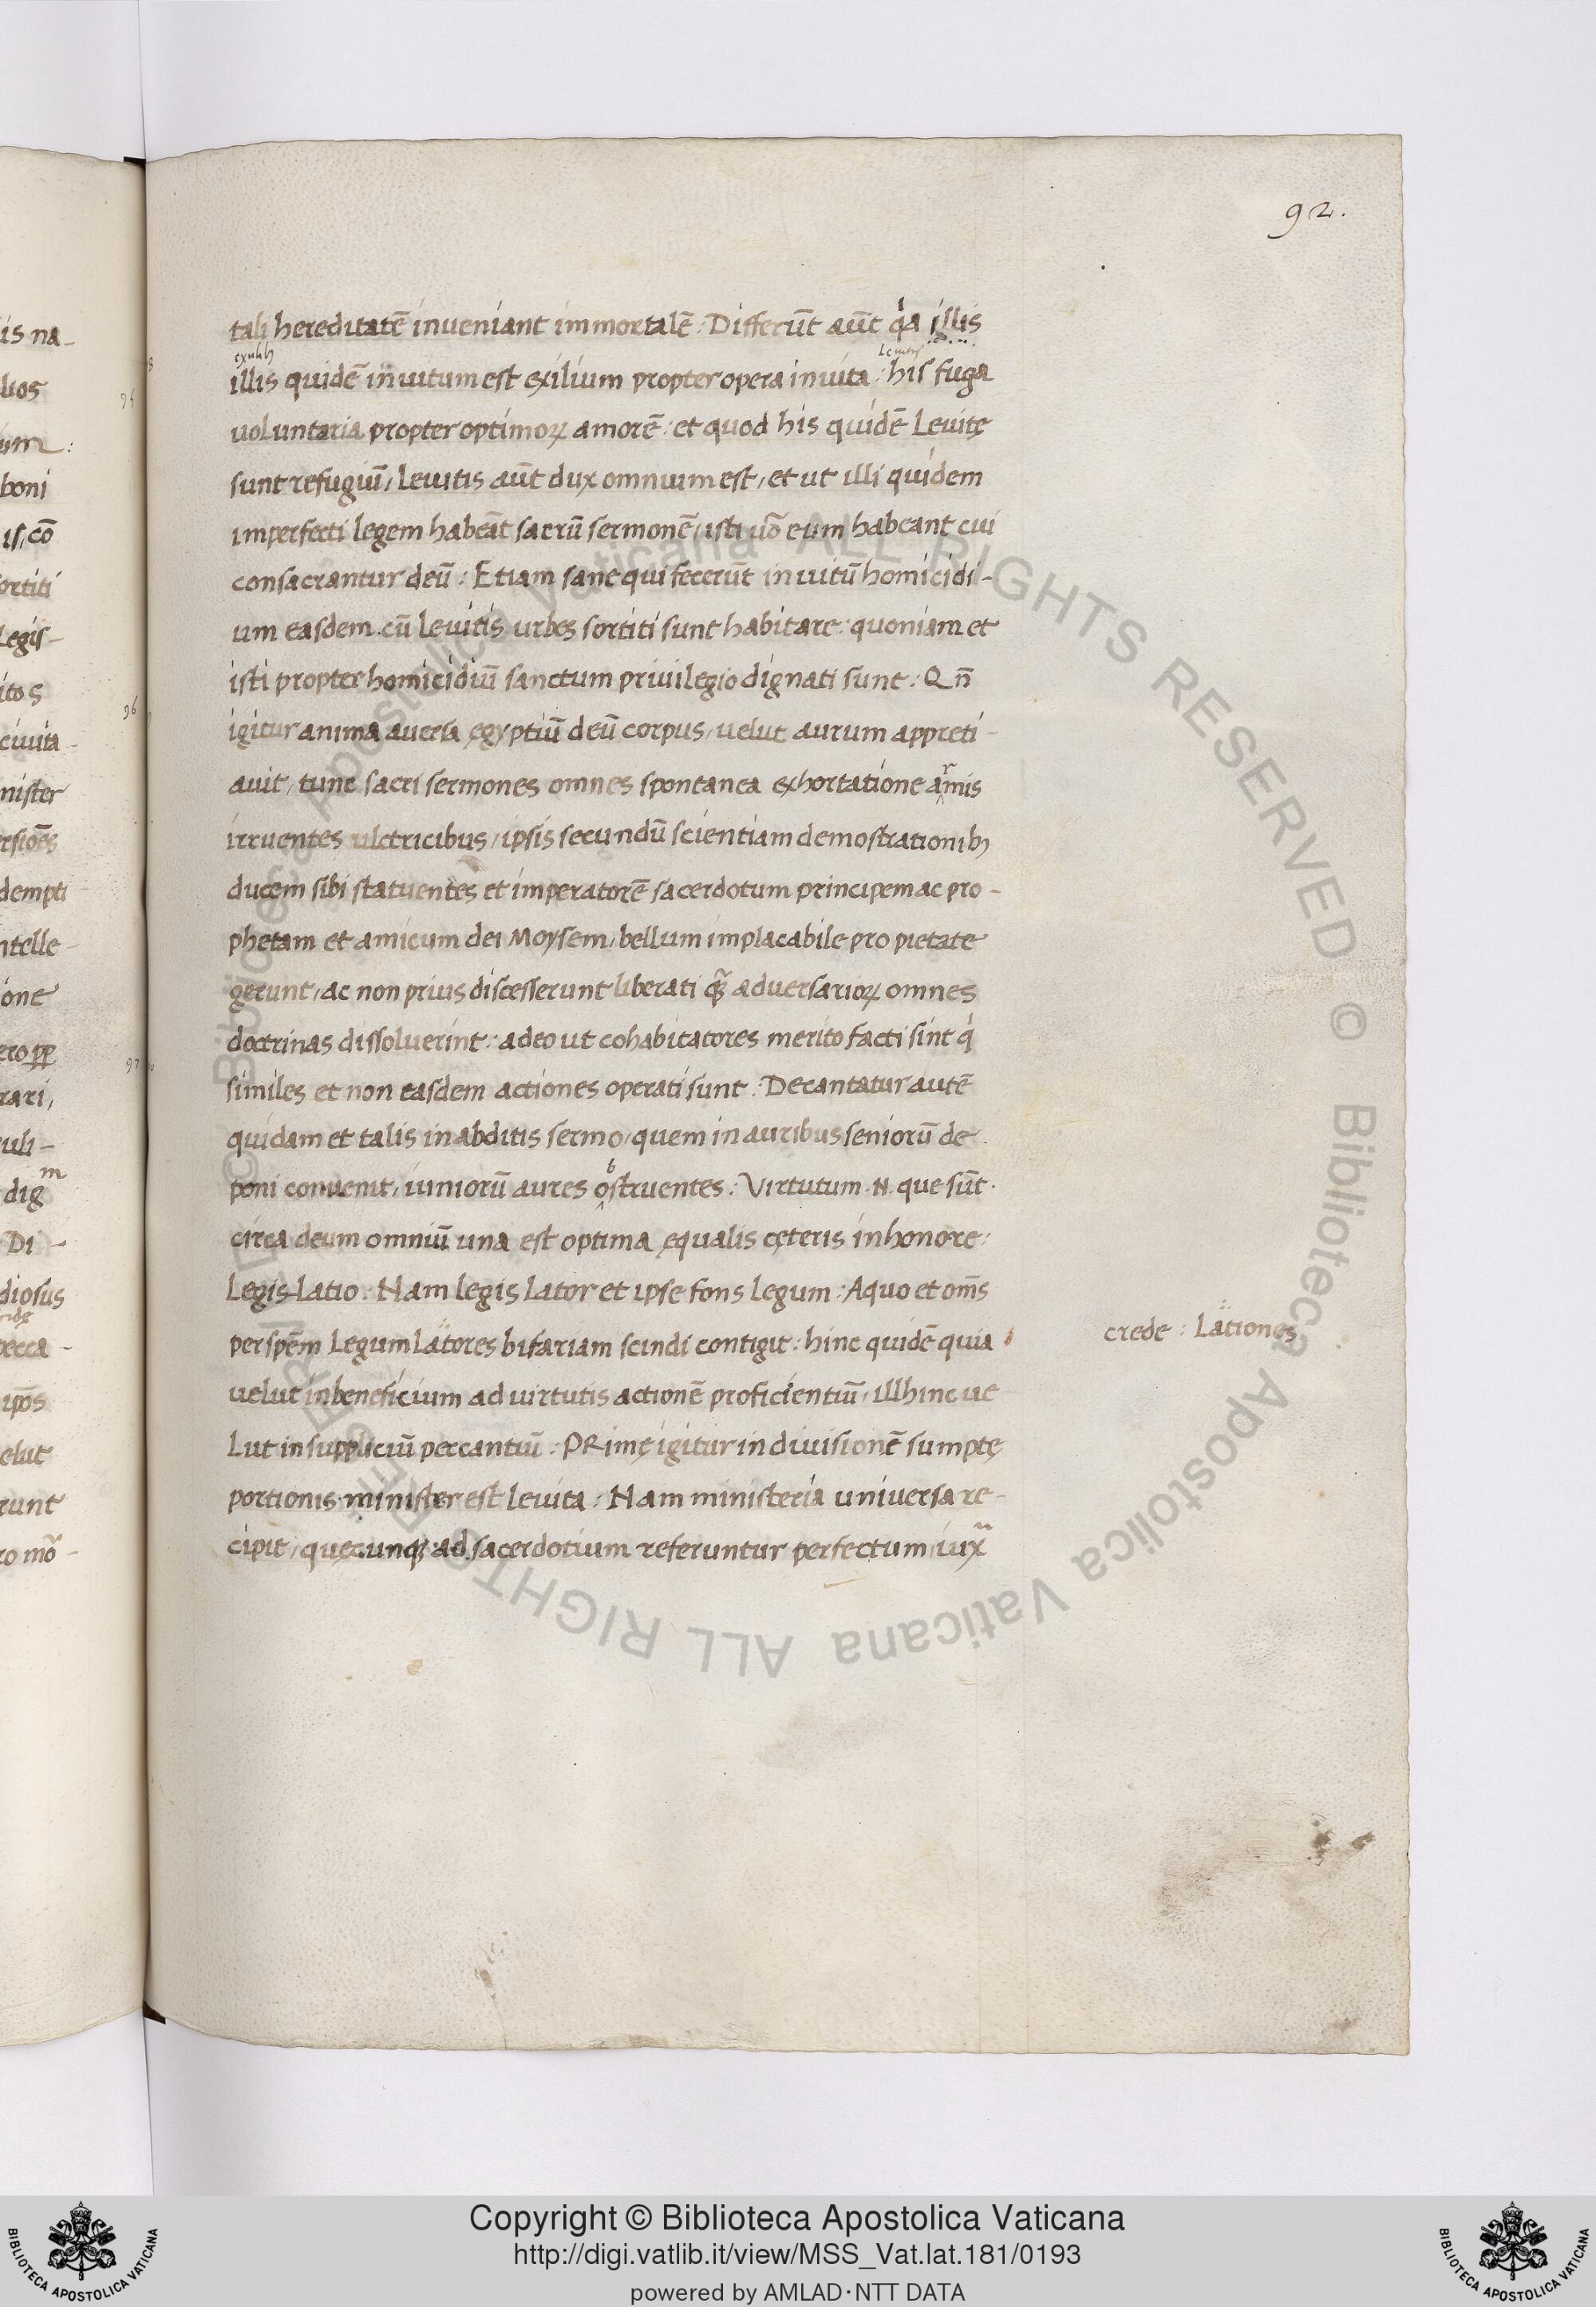 92.
tali hereditatē inveniant immortalē : Differūt aūt qͥa illis
illis quidē invitum est exilium propter opera invita : his fuga
voluntaria propter optimoꝝ amorē : et quod his quidē Levitę
sunt refugiū, Levitis aūt dux omnium est, et ut illi quidem
imperfecti legem habeāt sacrū sermonē, isti vō eum habeant cui
consacrantur deū : Etiam sane qui fecerūt invitū homicidi-
um easdem cū Levitis urbes sortiti sunt habitare : quoniam et
isti propter homicidiū sanctum privilegio dignati sunt : Qn̄
igitur anima aversa ęgyptiū deū corpus, velut aurum appreti-
avit, tunc sacri sermones omnes spontanea exhortatione armis
irruentes ultricibus, ipsis secundū scientiam demostrationibꝫ
ducem sibi statuentes et imperatorē sacerdotum principem ac pro-
phetam et amicum dei Moysem, bellum implacabile pro pietate
gerunt, ac non prius discesserunt liberati qꝫ̄ adversarioꝝ omnes
doctrinas dissoluerint : adeo ut cohabitatores merito facti sint qͥ
similes et non easdem actiones operati sunt : Decantatur autē
quidam et talis in abditis sermo, quem in auribus seniorū de
poni convenit, iuniorū aures obstruentes : Virtutum .N. que sūt
circa deum omniū una est optima ęqualis cęteris in honore :
Legis-Latio : Nam legis Lator et ipse fons Legum : A quo et om̄s
per spēm Legum Lätores bifariam scindi contigit : hinc quidē quia
crede : Lätiones
velut in beneficium ad virtutis actionē proficientiū, illhinc ve
Lut in suppliciū peccantiū : PRimę igitur in divisionē sumptę
portionis minister est Levita : Nam ministeria universa re-
cipit, quęcunqꝫ ad sacerdotium referuntur perfectum, iuxͣ
is na-
lios
boni
is, cō
ortiti
Legis-
itos
civita-
nister
rsiōes
dempti
ntelle-
ione
ero pp
rari,
uli-
digᵐ
Di-
diosus
pecca-
ip̄os
elut
runt
ro mō-
96
97
Biblioteca Apostolica Vaticana ALL RIGHTS RESERVED © Biblioteca Apostolica Vaticana ALL RIGHTS RESERVED ©
Copyright © Biblioteca Apostolica Vaticana
http://digi.vatlib.it/view/MSS_Vat.lat.181/0193
powered by AMLAD·NTT DATA
BIBLIOTECA APOSTOLICA VATICANA
BIBLIOTECA APOSTOLICA VATICANA